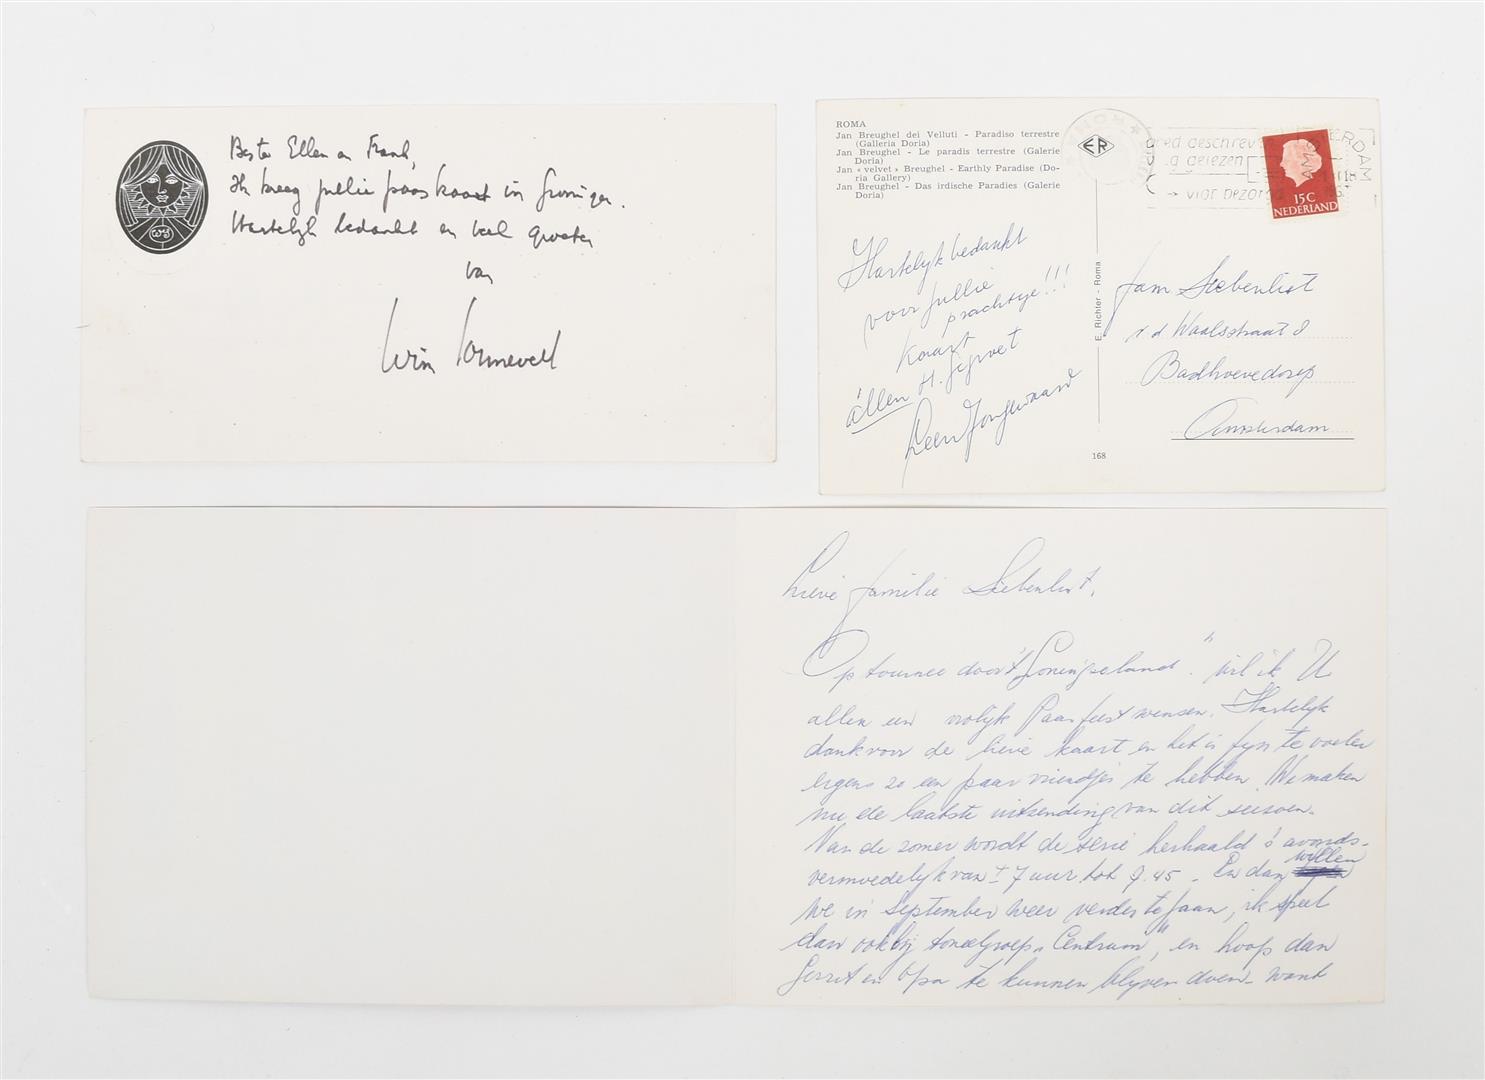 Beste Ellen en Frank,
Ik kreeg jullie paaskaart in Groningen.
Hartelijk bedankt en veel groeten
van
Wim Sonneveld
WS
ROMA
Jan Breughel dei Velluti - Paradiso terrestre
(Galleria Doria)
Jan Breughel - Le paradis terrestre (Galerie
Doria)
Jan « velvet » Breughel - Earthly Paradise (Do-
ria Gallery)
Jan Breughel - Das irdische Paradies (Galerie
Doria)
Hartelijk bedankt
voor jullie
prachtige!!!
kaart
állen H. gegroet
Leen Jongewaard
ER
E. Richter - Roma
168
goed geschreven
vlot bezorgd
AMSTERDAM
15C
NEDERLAND
fam Siebenlist
v d Waalsstraat 8
Badhoevedorp
Amsterdam
Lieve familie Siebenlist,
Op tournee door 't Groningseland" wil ik U
allen een vrolijk Paasfeest wensen. Hartelijk
dank voor de lieve kaart en het is fijn te voelen
ergens zo een paar vriendjes te hebben. We maken
nu de laatste uitzending van dit seizoen.
Van de zomer wordt de serie herhaald 's avonds-
vermoedelijk van ± 7 uur tot 7.45 - En dan willen
we in September weer verder te gaan, ik speel
dan ook bij toneelgroep "Centrum", en hoop dan
Gerrit en Opa te kunnen blijven doen - want